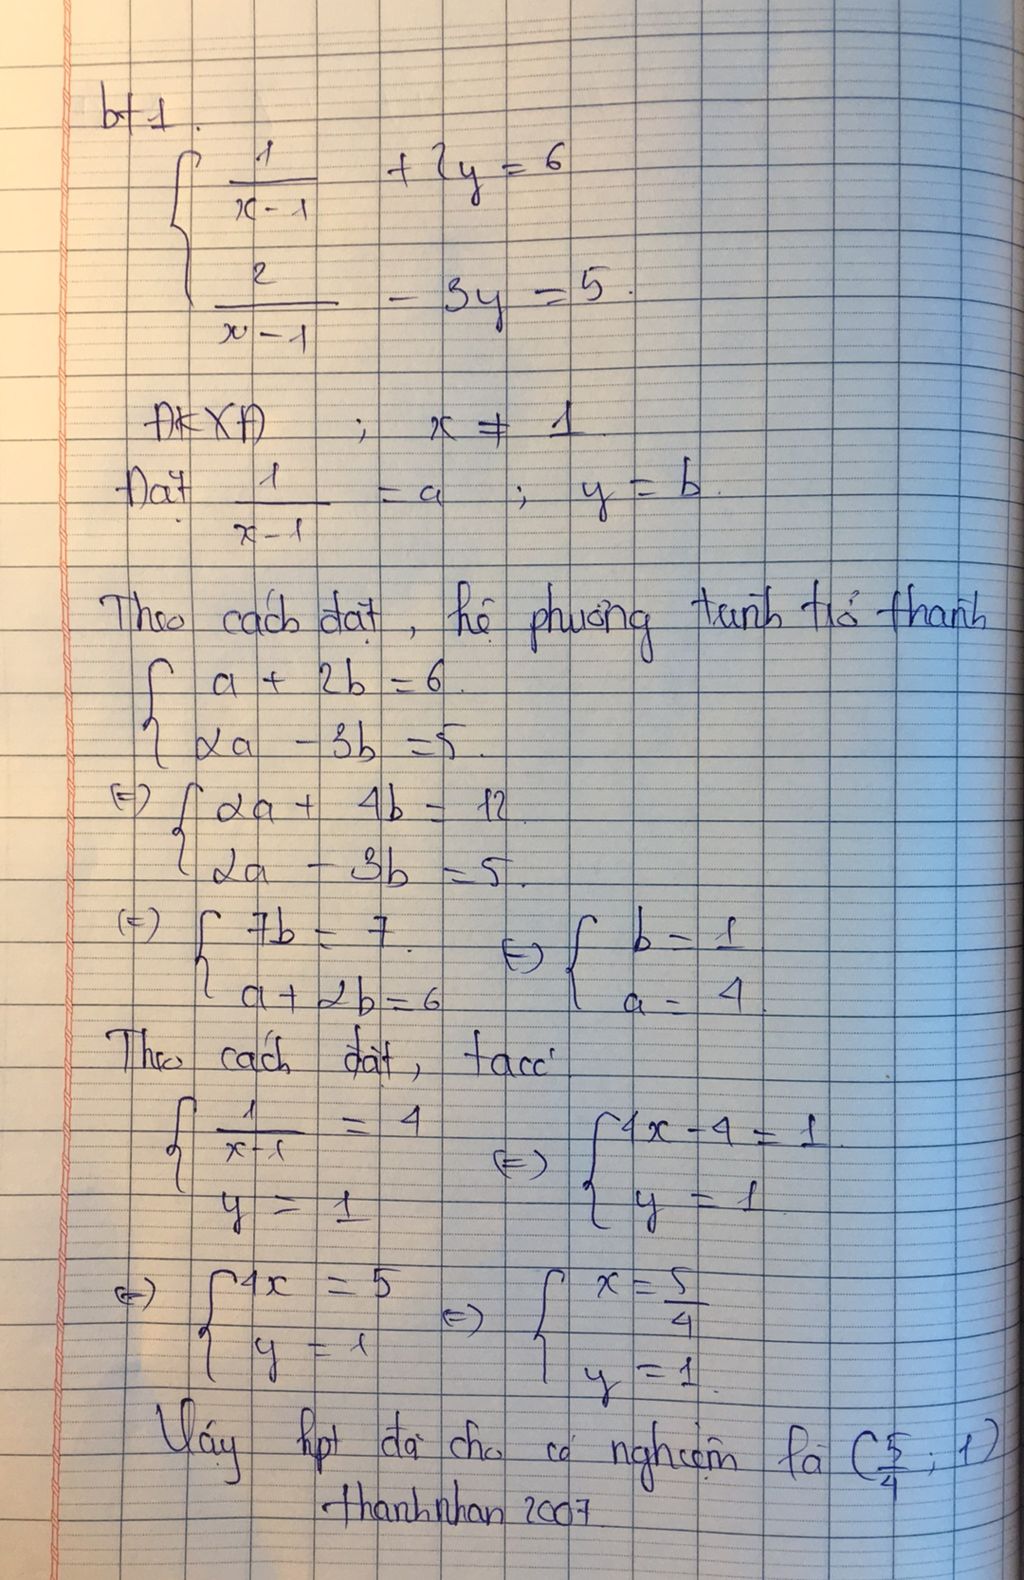 bt 1.
1/(x-1) + 2y = 6
2/(x-1) - 3y = 5.
ĐKXĐ ; x ≠ 1
Đặt 1/(x-1) = a ; y = b.
Theo cách đặt, hệ phương trình trở thành
a + 2b = 6.
2a - 3b = 5.
(=) 2a + 4b = 12
2a - 3b = 5.
(=) 7b = 7. (=) b = 1
a + 2b = 6 a = 4
Theo cách đặt, ta có
1/(x-1) = 4 (=) 4x - 4 = 1
y = 1 y = 1
(=) 4x = 5 (=) x = 5/4
y = 1 y = 1.
Vậy hpt đã cho có nghiệm là (5/4 ; 1)
thanhnhan 2007